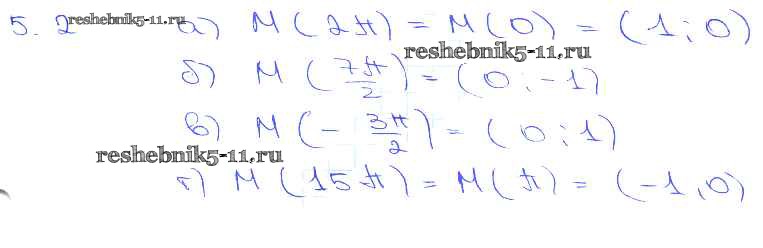 5.2 reshebnik5-11.ru а) M(2π) = M(0) = (1; 0)
reshebnik5-11.ru
б) M(7π/2) = (0; -1)
в) M(-3π/2) = (0; 1)
reshebnik5-11.ru
г) M(15π) = M(π) = (-1, 0)